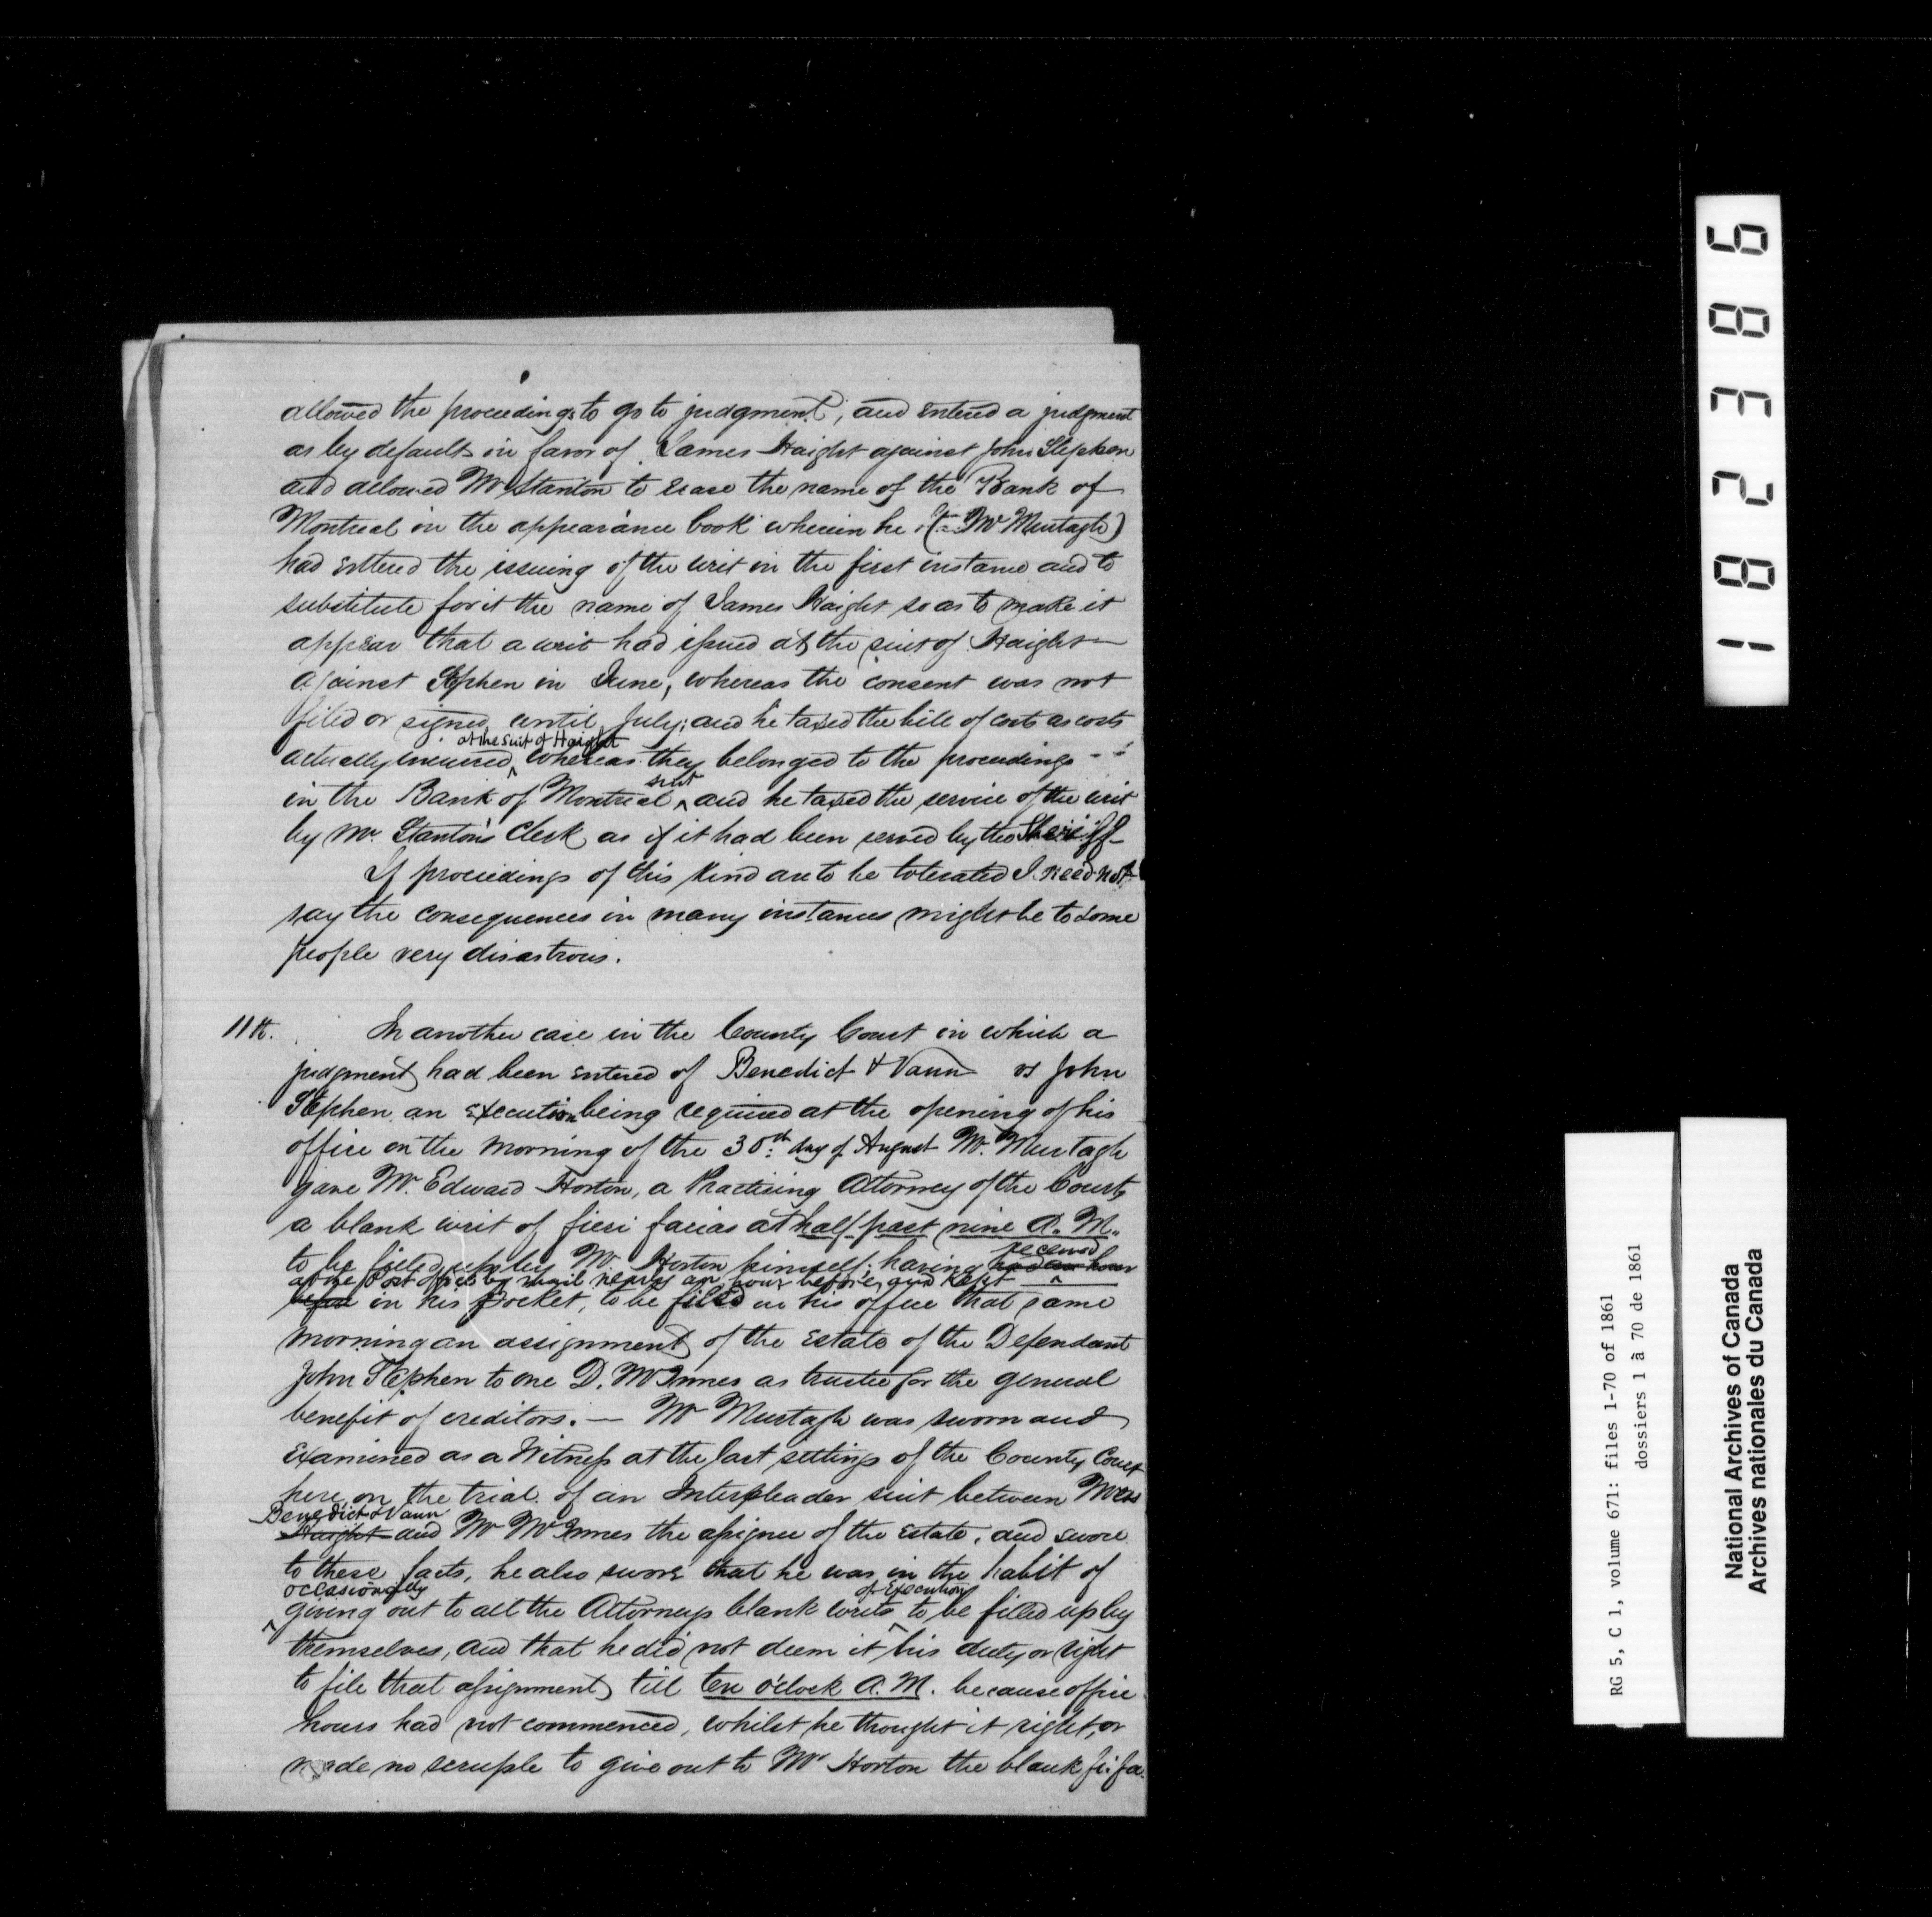 allowed the proceedings to go to judgment, and entered a judgment
as by default in favor of James Haight against John Stephen
and allowed Mr Stanton to erase the name of the Bank of
Montreal in the appearance book wherein he (Mr Murtagh)
had entered the issuing of the writ in the first instance and to
substitute for it the name of James Haight so as to make it
appear that a writ had issued at the suit of Haight
against Stephen in June, whereas the consent was not
filed or signed until July; and he taxed the bill of costs as costs
at the suit of Haight
actually incurred whereas they belonged to the proceedings
suit
in the Bank of Montreal and he taxed the service of the writ
by Mr. Stanton's Clerk as if it had been served by the Sheriff
If proceedings of this kind are to be tolerated I need not
say the consequences in many instances might be to some
people very disastrous.
11th. In another case in the County Court in which a
judgment had been entered of Benedict & Vann vs John
Stephen an execution being required at the opening of his
office on the morning of the 30th day of August Mr. Murtagh
gave Mr. Edward Horton, a Practising Attorney of the Court,
a blank writ of fieri facias at half past nine A.M.
received
to be filled up by Mr. Horton himself; having had an hour
at the Post Office by mail nearly an hour before, and kept
before in his pocket, to be filed in his office that same
morning an assignment of the Estate of the Defendant
John Stephen to one D. McInnes as trustee for the general
benefit of creditors. — Mr Murtagh was sworn and
Examined as a Witness at the last sittings of the County Court
here, on the trial of an Interpleader suit between Messrs
Benedict & Vann
Haight and Mr McInnes the assignee of the estate, and swore
to these facts, he also swore that he was in the habit of
occasionally of Execution
giving out to all the Attorneys blank writs to be filled up by
themselves, and that he did not deem it his duty or right
to file that assignment till ten o'clock A.M. because office
hours had not commenced, whilst he thought it right, or
made no scruple to give out to Mr Horton the blank fi: fa.
182386
RG 5, C 1, volume 671: files 1-70 of 1861
dossiers 1 à 70 de 1861
National Archives of Canada
Archives nationales du Canada